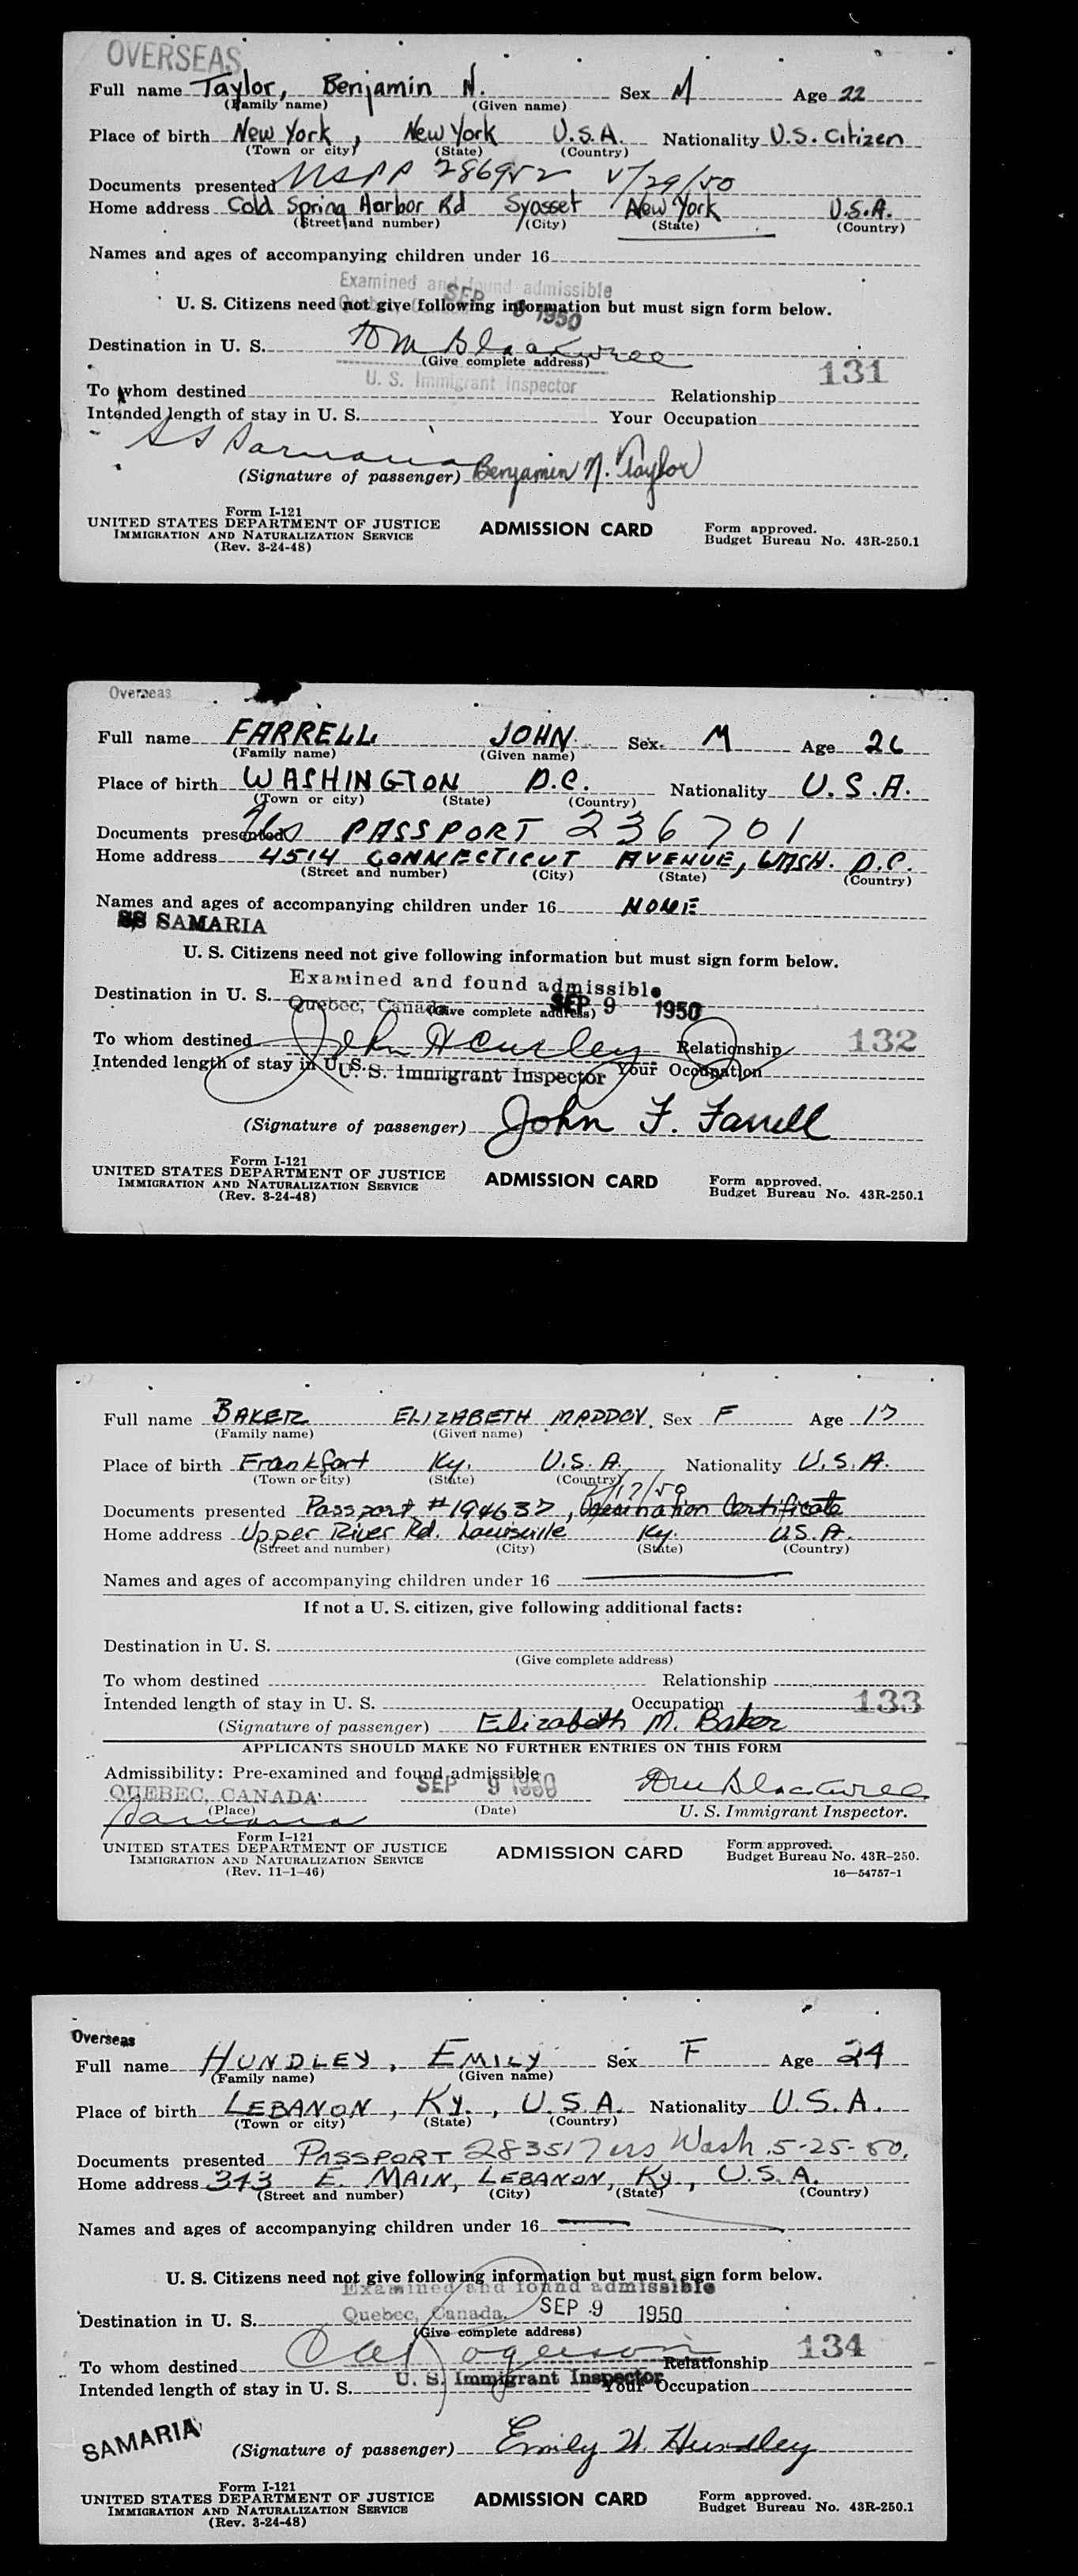 OVERSEAS
Full name Taylor, Benjamin N. Sex M Age 22
(Family name) (Given name)
Place of birth New York, New York U.S.A. Nationality U.S. Citizen
(Town or city) (State) (Country)
Documents presented USPP 286952 5/29/50
Home address Cold Spring Harbor Rd Syosset New York U.S.A.
(Street and number) (City) (State) (Country)
Names and ages of accompanying children under 16
Examined and found admissible
U. S. Citizens need not give following information but must sign form below.
SEP 9 1950
Destination in U. S.
(Give complete address)
131
U. S. Immigrant Inspector
To whom destined Relationship
Intended length of stay in U. S. Your Occupation
SS Samaria
(Signature of passenger) Benjamin N. Taylor
Form I-121
UNITED STATES DEPARTMENT OF JUSTICE ADMISSION CARD Form approved.
IMMIGRATION AND NATURALIZATION SERVICE Budget Bureau No. 43R-250.1
(Rev. 3-24-48)
Overseas
Full name FARRELL JOHN Sex M Age 26
(Family name) (Given name)
Place of birth WASHINGTON D.C. Nationality U.S.A.
(Town or city) (State) (Country)
Documents presented PASSPORT 236701
Home address 4514 CONNECTICUT AVENUE, WASH. D.C.
(Street and number) (City) (State) (Country)
Names and ages of accompanying children under 16 NONE
SS SAMARIA
U. S. Citizens need not give following information but must sign form below.
Examined and found admissible
Destination in U. S. Quebec, Canada SEP 9 1950
(Give complete address)
To whom destined Relationship 132
Intended length of stay in U. S. Your Occupation
U. S. Immigrant Inspector
(Signature of passenger) John F. Farrell
Form I-121
UNITED STATES DEPARTMENT OF JUSTICE ADMISSION CARD Form approved.
IMMIGRATION AND NATURALIZATION SERVICE Budget Bureau No. 43R-250.1
(Rev. 3-24-48)
Full name BAKER ELIZABETH MADDOX Sex F Age 17
(Family name) (Given name)
Place of birth Frankfort Ky. U.S.A. Nationality U.S.A.
(Town or city) (State) (Country)
Documents presented Passport #194637, Vaccination Certificate
Home address Upper River Rd. Louisville Ky. U.S.A.
(Street and number) (City) (State) (Country)
Names and ages of accompanying children under 16
If not a U. S. citizen, give following additional facts:
Destination in U. S.
(Give complete address)
To whom destined Relationship
Intended length of stay in U. S. Occupation 133
(Signature of passenger) Elizabeth M. Baker
APPLICANTS SHOULD MAKE NO FURTHER ENTRIES ON THIS FORM
Admissibility: Pre-examined and found admissible
QUEBEC, CANADA SEP 9 1950
(Place) (Date) U. S. Immigrant Inspector.
Samaria
Form I-121
UNITED STATES DEPARTMENT OF JUSTICE ADMISSION CARD Form approved.
IMMIGRATION AND NATURALIZATION SERVICE Budget Bureau No. 43R-250.
(Rev. 11-1-46) 16—54757-1
Overseas
Full name HUNDLEY, EMILY Sex F Age 24
(Family name) (Given name)
Place of birth LEBANON, KY., U.S.A. Nationality U.S.A.
(Town or city) (State) (Country)
Documents presented PASSPORT 283517 iss Wash 5-25-50.
Home address 343 E. MAIN, LEBANON, KY., U.S.A.
(Street and number) (City) (State) (Country)
Names and ages of accompanying children under 16
U. S. Citizens need not give following information but must sign form below.
Examined and found admissible
Destination in U. S. Quebec, Canada, SEP 9 1950
(Give complete address)
134
To whom destined Relationship
U. S. Immigrant Inspector
Intended length of stay in U. S. Your Occupation
SAMARIA
(Signature of passenger) Emily H. Hundley
Form I-121
UNITED STATES DEPARTMENT OF JUSTICE ADMISSION CARD Form approved.
IMMIGRATION AND NATURALIZATION SERVICE Budget Bureau No. 43R-250.1
(Rev. 3-24-48)